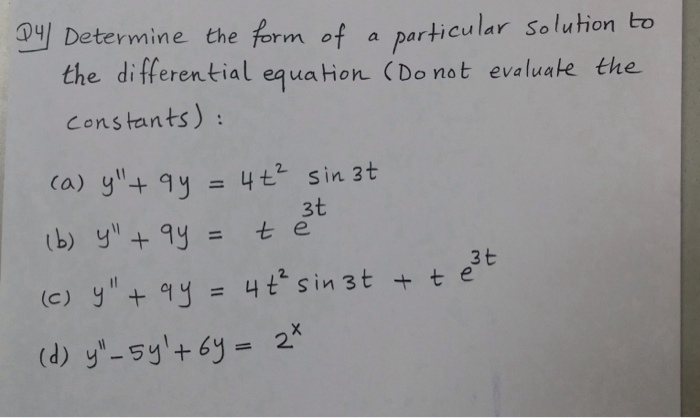 Q4/ Determine the form of a particular solution to
the differential equation (Do not evaluate the
constants) :
(a) y" + 9y = 4t² sin 3t
(b) y" + 9y = t e^3t
(c) y" + 9y = 4t² sin 3t + t e^3t
(d) y" - 5y' + 6y = 2^x